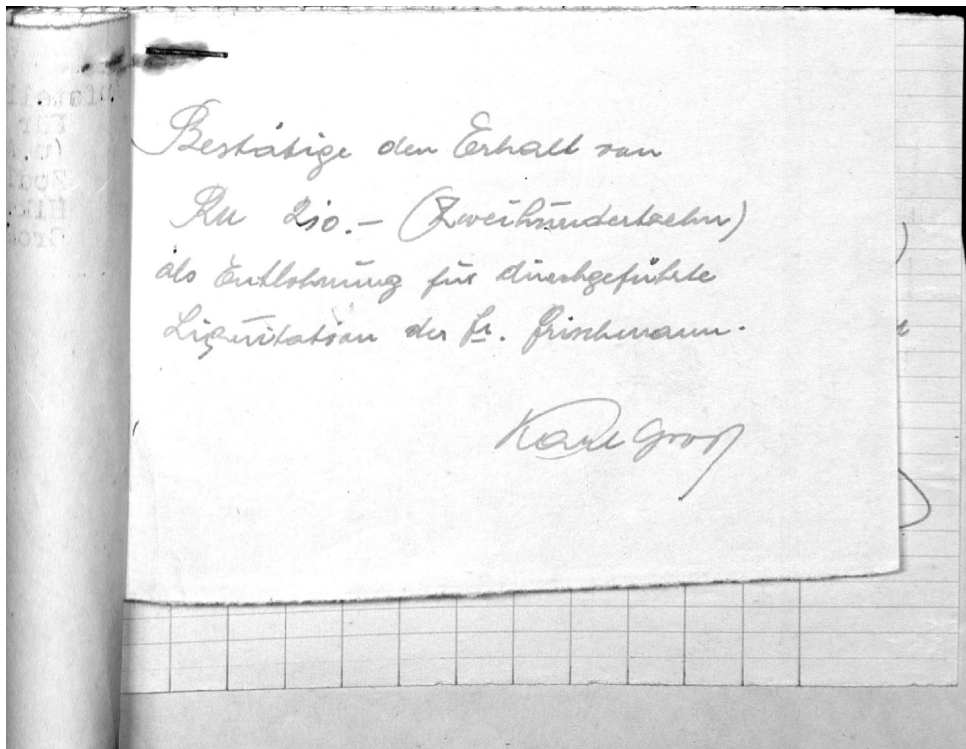 Bestätige den Erhalt von
RM 210.— (Zweihundertzehn)
als Entlohnung für durchgeführte
Liquitation der Fr. Frischmann.
Karl Groß